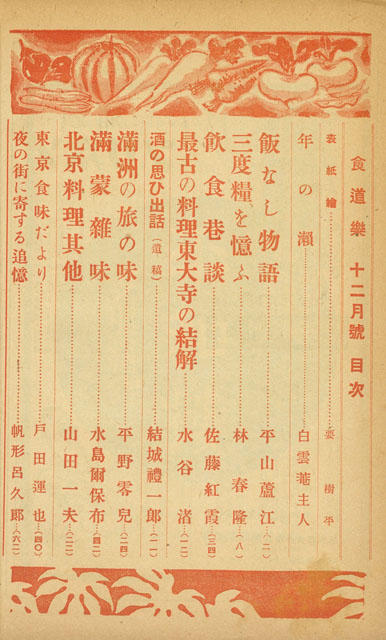 食道樂 十二月號 目次
表紙繪……………………… 樹平
年の瀬……………………白雲菴主人
飯なし物語………………平山蘆江…(二)
三度糧を憶ふ……………林春隆…(八)
飲食巷談…………………佐藤紅霞…(三四)
最古の料理東大寺の結解……水谷渚…(一二)
酒の思ひ出話(遺稿)…………結城禮一郎…(一一)
滿洲の旅の味……………平野零兒…(二四)
滿蒙雜味…………………水島爾保布…(四二)
北京料理其他……………山田一夫…(二二)
東京食味だより…………戸田運也…(四〇)
夜の街に寄する追憶……帆形呂久郎…(六二)